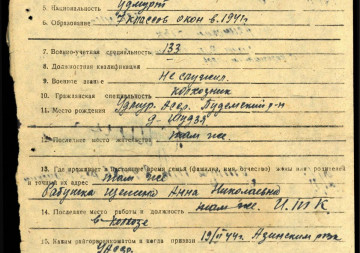 5. Национальность удмурт
6. Образование 7 классов окон в. 1941 г.
7. Военно-учетная специальность 133
8. Должностная квалификация
9. Военное звание не служил.
10. Гражданская специальность колхозник
11. Место рождения Удмур. АССР.
д-
12. Последнее место жительства там же.
13. Где проживает в настоящее время семья (фамилия, имя, отчество) жены или родителей
и точный их адрес там же
бабушка Анна Николаевна
14. Последнее место работы и должность там же.
в колхозе
15. Каким райгорвоенкоматом и когда призван 44 г. Азинским рвк
УАССР.